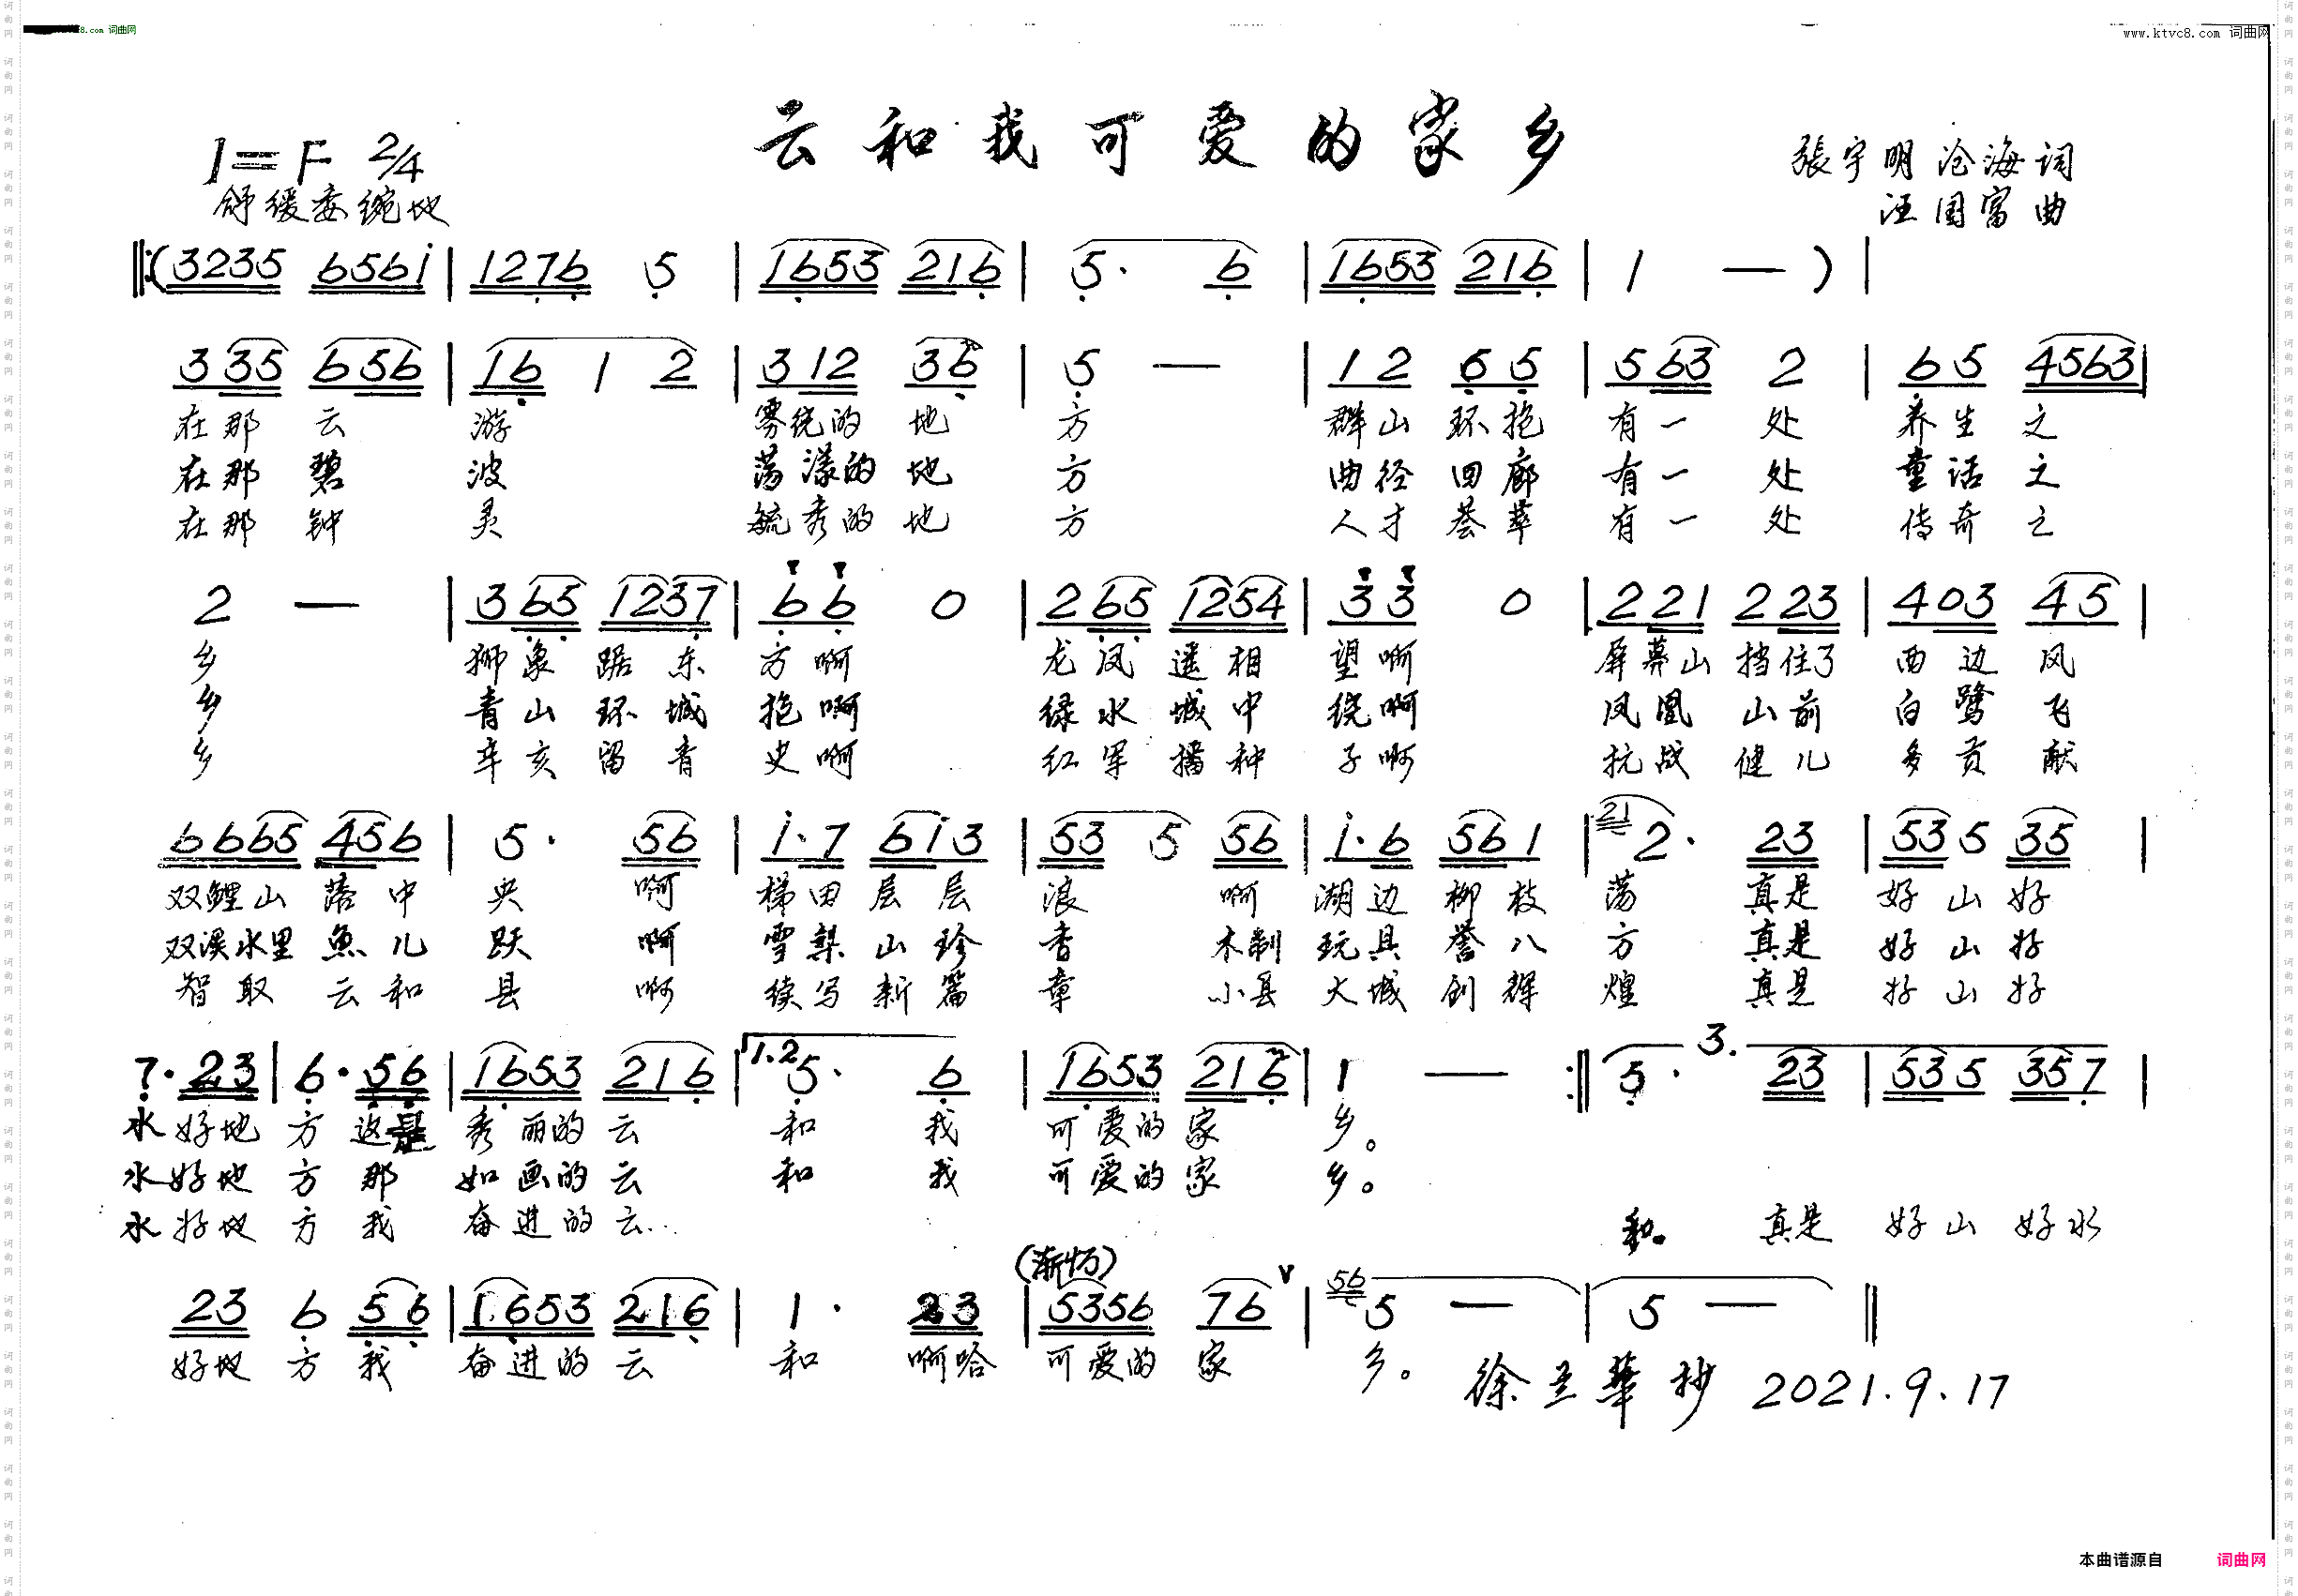 www.ktvc8.com 词曲网
云和我可爱的家乡
1=F 2/4
張宇明 沧海 词
舒缓委婉地
汪国富 曲
‖:(3235 6561̇ | 1276 5 | 1653 216 | 5· 6 | 1653 216 | 1 — ) |
3 35 656 | 16 1 2 | 3 12 36 | 5 — | 1 2 6 5 | 5 63 2 | 6 5 4563 |
在那云游 雾绕的地方 群山环抱有一处 养生之
在那碧波 荡漾的地方 曲径回廊有一处 童话之
在那钟灵 毓秀的地方 人才荟萃有一处 传奇之
2 — | 3 65 1237 | 6 6 0 | 2 65 1254 | 3 3 0 | 2 21 2 23 | 4 03 45 |
乡 狮象踞东方啊 龙凤遥相望啊 屏幕山挡住了西边风
乡 青山环城抱啊 绿水城中绕啊 凤凰山前白鹭飞
乡 辛亥留青史啊 红军播种子啊 抗战健儿多贡献
6665 456 | 5· 56 | 1̇·7 61̇3 | 53 5 56 | 1̇·6 561 | 21 2· 23 | 53 5 35 |
双鲤山落中央 啊 梯田层层浪 啊 湖边柳枝荡 真是好山好
双溪水里魚儿跃 啊 雪梨山珍香 木制玩具誉八方 真是好山好
智取云和县 啊 续写新篇章 小县大城创辉煌 真是好山好
7·23 | 6·56 | 1653 216 | 1.2 5· 6 | 1653 216 | 1 — :‖ 3. 5· 23 | 53 5 35 7 |
水好地方这是秀丽的云和我可爱的家乡。
水好地方那如画的云和我可爱的家乡。
水好地方我奋进的云‥ 和。 真是好山好水
(渐慢)
23 6 56 | 1653 216 | 1· 23 | 5356 76 ∨ | 56 5 — | 5 — ‖
好地方我奋进的云和啊哈可爱的家乡。
徐 華抄 2021.9.17
本曲谱源自 词曲网